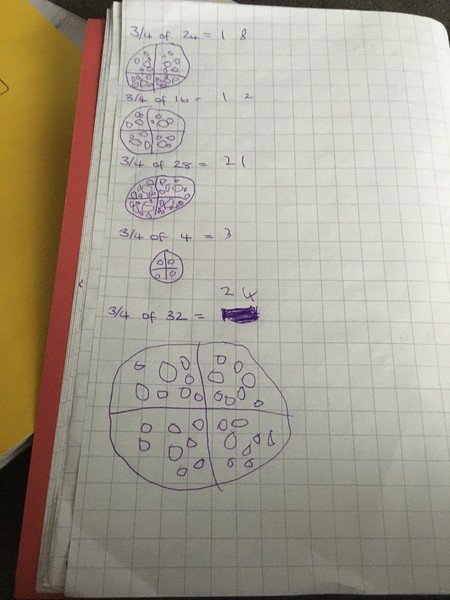 3/4 of 24 = 18
3/4 of 16 = 12
3/4 of 28 = 21
3/4 of 4 = 3
24
3/4 of 32 =